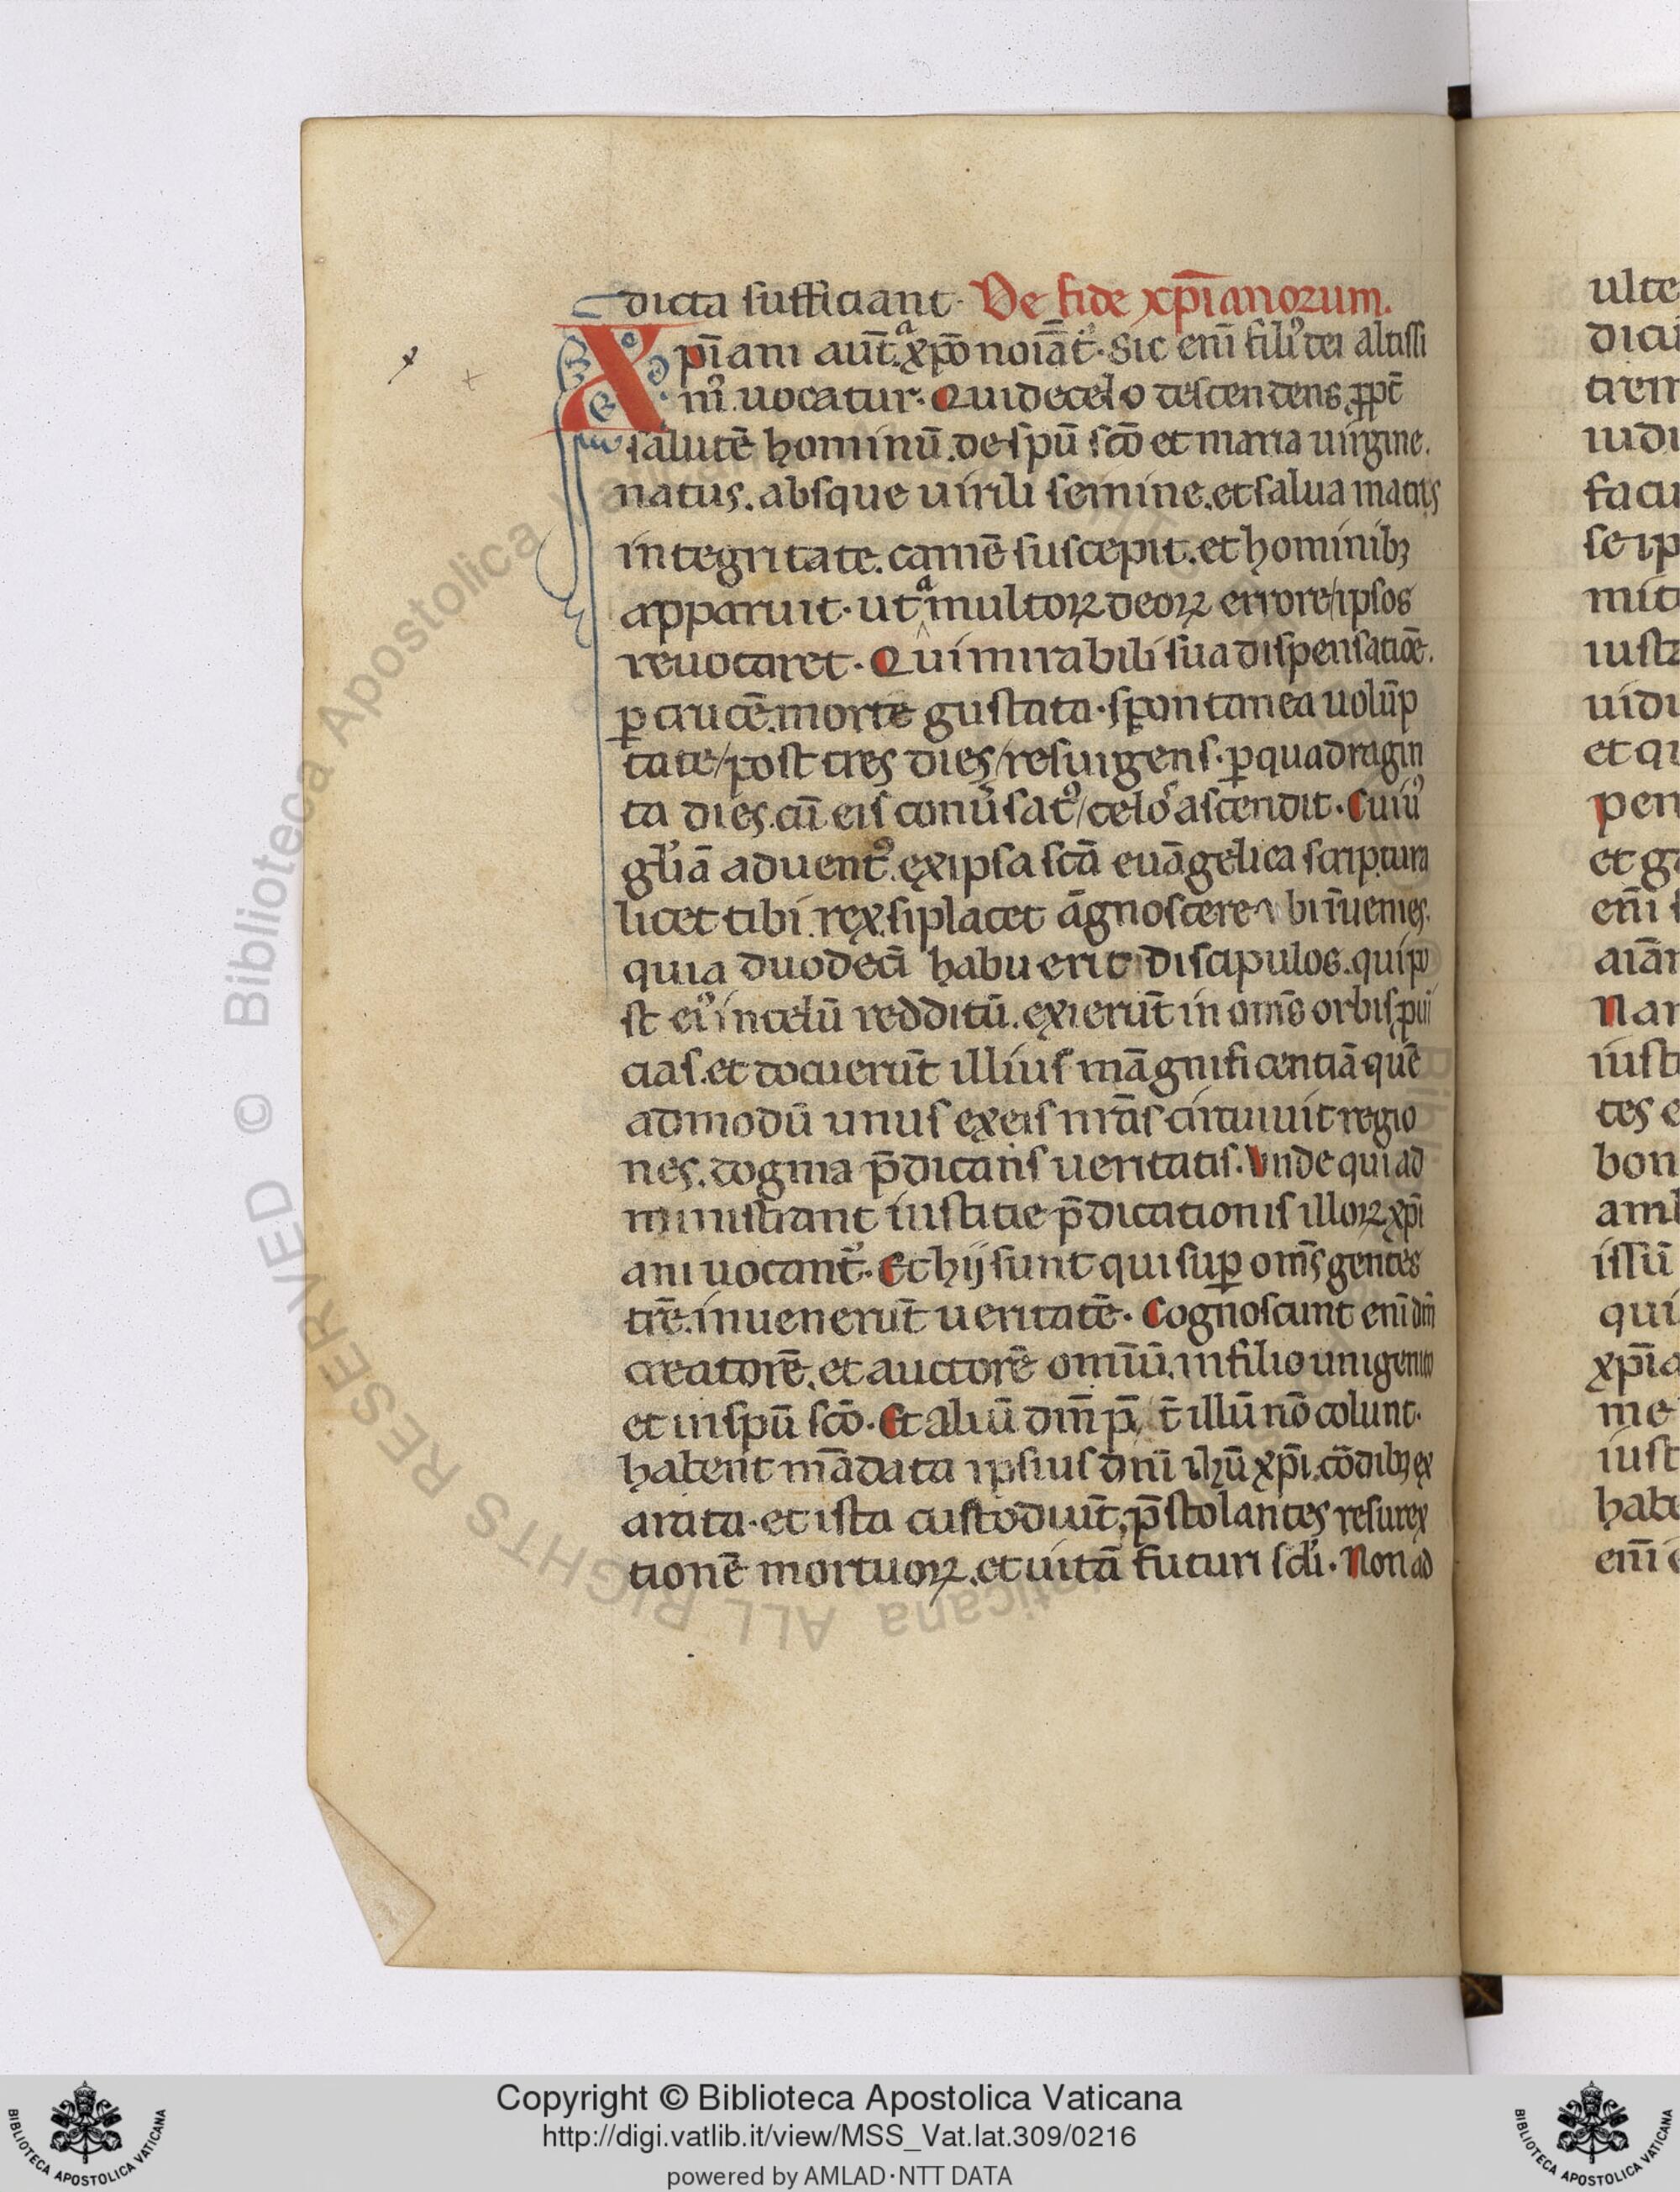 dicta sufficiant. De fide xp̄ianorum.
Xp̄iani aūt a xp̄o noīant᷒. Sic eni᷒ fili᷒ dei altissi
m᷒ uocatur. Qui de celo descendens ꝓpt̄
salutē hominū. de spū sc̄o et maria uirgine.
natus. absque uirili semine. et salua matris
integritate. carnē suscepit. et hominibꝫ
apparuit. ut a multoꝝ deoꝝ errore/ipsos
reuocaret. Qui mirabili sua dispensatiōe.
ꝑ crucē. morte gustata. spontanea uolūp
tate/post tres dies/resurgens. ꝑ quadragin
ta dies. cū eis conūsat᷒/celos ascendit. Cui᷒
gl̄iā aduent᷒. ex ipsa sc̄a euāgelica scriptura
licet tibi. rex. si placet āgnoscere. ubi īuenies.
quia duodecī habuerit discipulos. qui po
st ei᷒ in celū redditū. exierūt in om̄s orbis ꝓui
cias. et docuerūt illius māgnificentiā quē
admodū unus ex eis nr̄as circuiuit regio
nes. dogma p̄dicans ueritatis. Unde qui ad
ministrant iustitie p̄dicationis illoꝝ xp̄i
ani uocant᷒. Et hij sunt qui suꝑ om̄s gentes
tr̄e. inuenerūt ueritatē. Cognoscunt enī dm̄
creatorē. et auctorē omīū. in filio unigenito
et in spū sc̄o. Et aliū dm̄ p̄t̄ illū nō colunt.
habent mādata ipsius dn̄i ih̄ū xp̄i. cōdibꝫ ex
arata. et ista custodiūt, p̄stolantes resurex
tionē mortuoꝝ. et uitā futuri scl̄i. Non ad
ulte
dici
trem
iudi
facu
se ip
mit
iusta
uidu
et qu
pen
et ga
enī s
aīam
Nam
iusti
tes e
bon
amb
issū
qui
xp̄ia
me
iust
habe
enī e
© Biblioteca Apostolica Vaticana ALL RIGHTS RESERVED
Copyright © Biblioteca Apostolica Vaticana
http://digi.vatlib.it/view/MSS_Vat.lat.309/0216
powered by AMLAD·NTT DATA
BIBLIOTECA APOSTOLICA VATICANA
BIBLIOTECA APOSTOLICA VATICANA